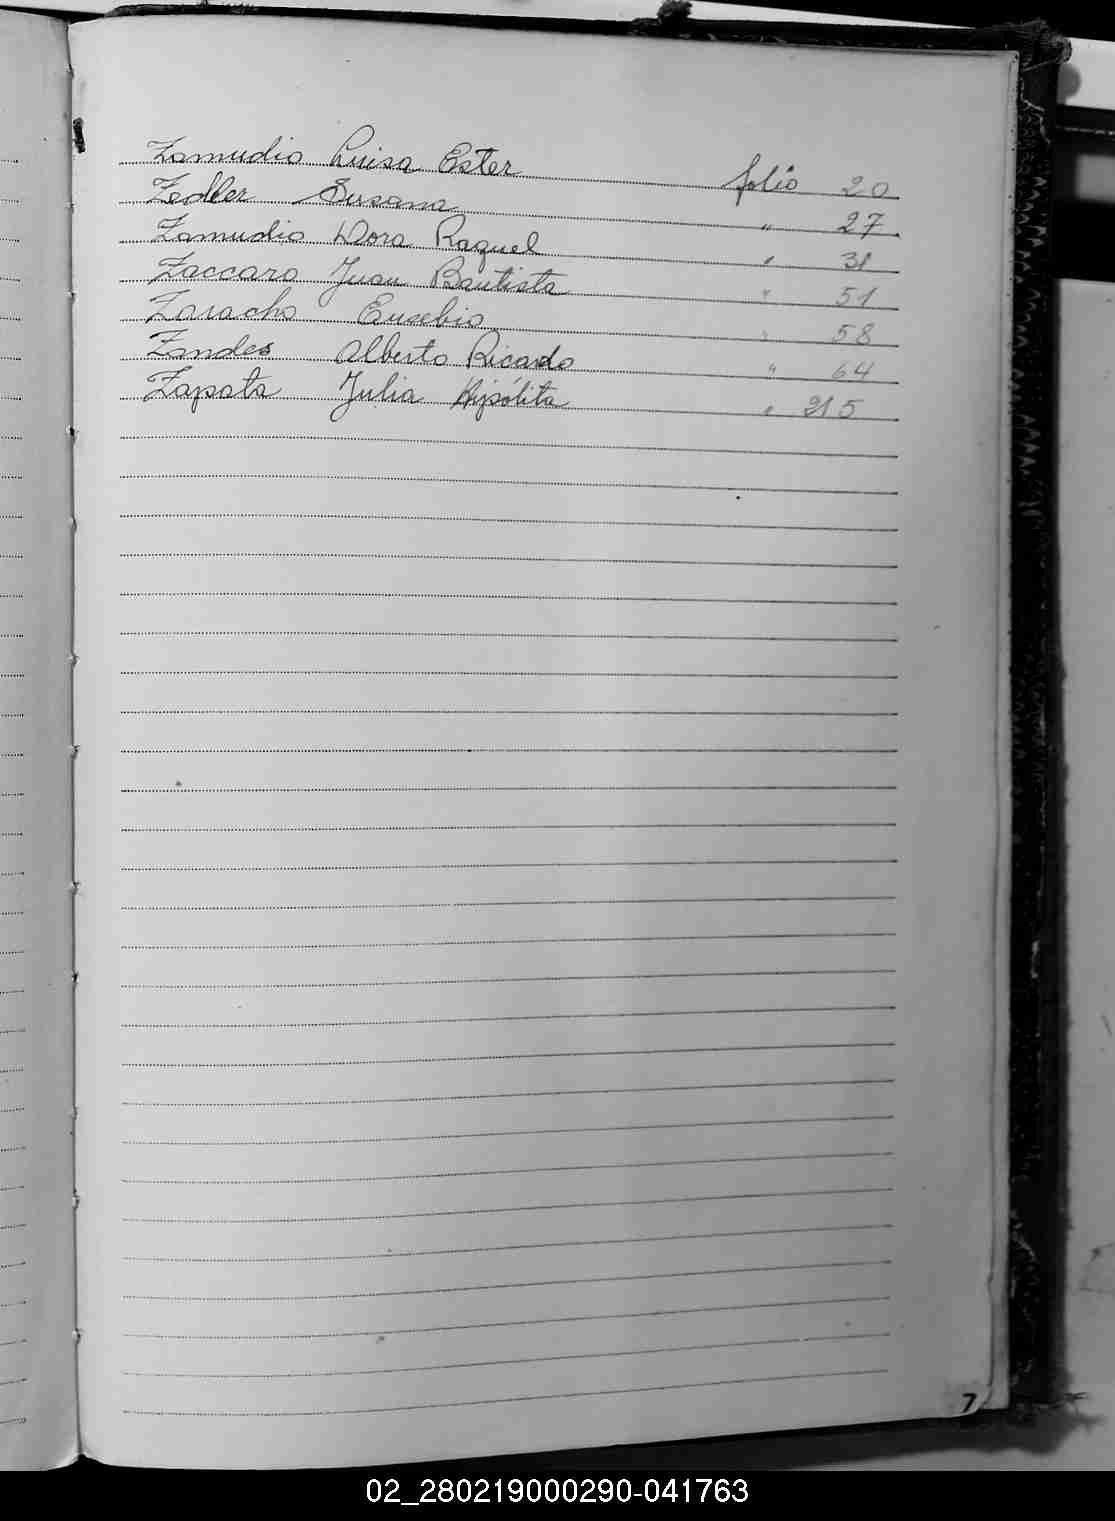 Zamudio Luisa Ester folio 20
Zedler Susana " 27
Zamudio Dora Raquel " 31
Zaccaro Juan Bautista " 51
Zaracho Eusebio " 58
Zindes Alberto Ricardo " 64
Zapata Julia Hipólita " 215
7
02_280219000290-041763